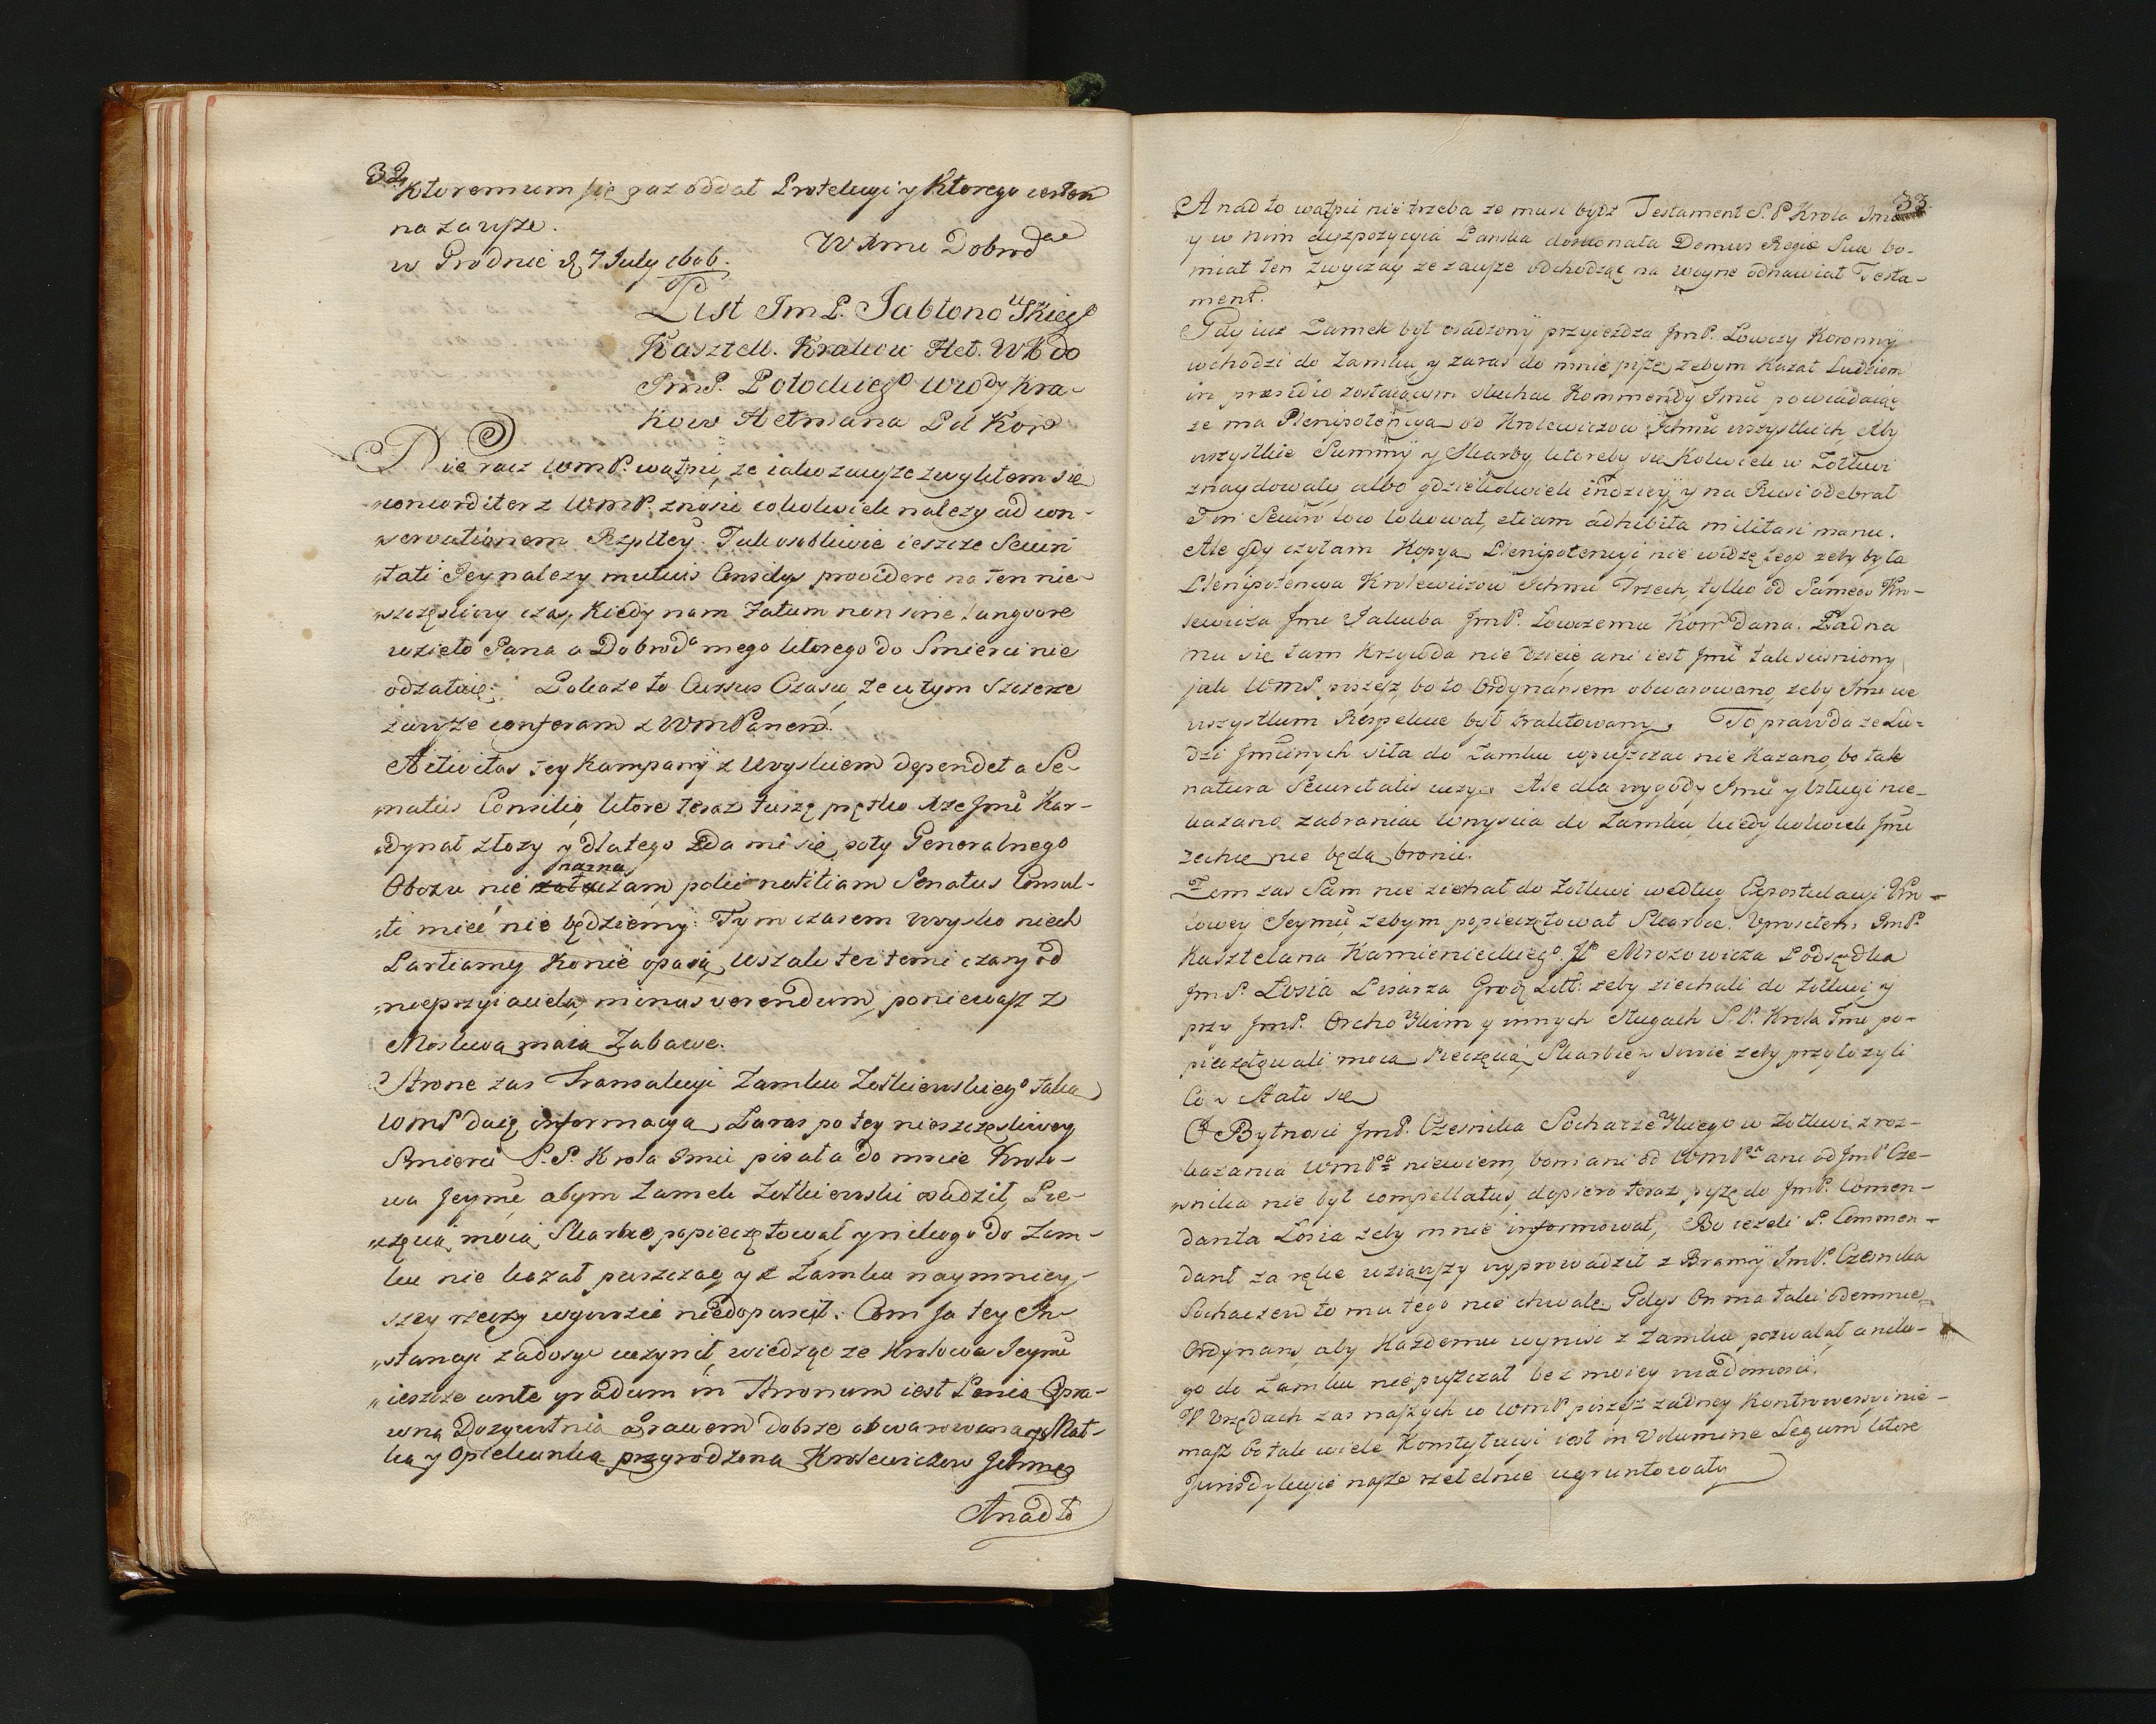 32
Ktoremum się raz oddał Protekcyi y Ktorego iestem
na zawsze.
WMmi Dobrod
w Grodnie d 7 July 1696.
List ImP. Jabłonowskieg°
Kasztell. Krakow Het. WK do
ImP. Potockieg° Wody Kra-
kow Hetmana Pol Kor
Nie racz WmP. wątpić, ze iako zawsze zwykłem się
concorditer z WmP. znosić cokolwiek nalezy ad con-
servationem Rzpltey. Tak osobliwie ieszcze Securi
tati Jey nalezy mutuis Consilys providere na ten nie
szczęsliwy czas, Kiedy nam Fatum non sine languore
wzieło Pana a Dobrod° mego ktorego do Smierci nie
odzałuię. Pokaze to Cursus Czasu, ze w tym szczerze
zawsze conferam z WMPanem.
Activitas tey Kampanÿ z Woyskiem dependet a Se-
natus Consilio, ktore teraz tuszę prętko Xze Jmć Kar-
dynał złozy y dlatego zda mi się, poty Generalnego
Obozu nie naznaczam, poki notitiam Senatus Consul-
ti mieć nie będziemy. Tym czasem Woysko niech
Partiamy Konie opasą, wszak tei temi czasy od
nieprzyiaciela, minus verendum, poniewasz z
Moskwą maią Zabawe.
Strone zas Transakcyi Zamku Zołkiewskieg° taką
WmP daię informacyą, Zaras po tey nieszczęsliwey
Smierci S.P. Krola Jmci pisała do mnie Krolo-
wa Jeymć, abym Zamek Zołkiewski osadził, Pie-
częcią moią Skarbce popieczętował, y nikogo do Zam-
ku nie kazał puszczac, y z Zamku naymniey-
szey rzeczy wywozic niedopuscił. Com Ja tey In-
stancyi zadosyc uczynił, wiedząc ze Krolowa Jeymć
ieszcze ante gradum in Thronum iest Pania Opra-
wną Dozywotnią Prawem dobrze obwarowana y Mat-
ka y Opiekunka przyrodzona Krolewiczow Ichmc
Anadto
33
A nad to wątpić nie trzeba ze musi bydz Testament S.P Krola Jmci
y w nim dyspozycyia Panska doskonała Domus Regiæ Suæ bo-
miał ten Zwyczay ze zawsze odchodząc na woyne odnawiał Testa-
ment.
Gdy iuz Zamek był osadzonÿ przyiezdza JmP. Łowczy Koronnÿ
wchodzi do Zamku, y zaras do mnie pisze, zebym kazał Ludziom
in præsidio zostaiącym słuchac Kommendy Jmci powiadaiąc
ze ma Plenipotencyą od Krolewiczow Ichmć wszystkich, Aby
wszystkie Summÿ y Skarby, ktoreby się Kolwiek w Zołkwi
znaydowały, albo gdziekolwiek indzieÿ y na Rusi odebrał
I in Securo loco lokował, etiam adhibita militari manu.
Ale gdy czytam Kopyą Plenipotencyi, nie widzę tego zeby była
Plenipotencya Krolewiczow Ichmc Trzech, tylko od Samego Kro-
lewicza Jmci Jakuba JmP. Łowczemu Korr Dana. Zadna
mu się tam Krzywda nie dzieie, ani iest Jmć tak scisniony,
jak WmP. piszesz, bo to Ordynansem obwarowano, zeby Jmc we
wszystkim Respekcie był traktowany. To prawda ze Lu-
dzi Jmcinych siła do Zamku wpuszczac nie Kazano, bo tak
natura Securitatis uczy. Ale dla wygody Jmci y Usługi nie
kazano zabraniac Wnyscia do Zamku, kiedykolwiek Jmc
zechce nie będą bronic.
Zem zas Sam nie ziechał do Zołkwi według Expostulacyi Kro-
lowey Jeymć, zebym popieczętował Skarbce. Uprosiłem JmP.
Kasztelana Kamienieckieg°. JP Mrozowicza Podsędka
JmP. Łosia Pisarza Grodz Litt: zeby ziechali do Zołkwi y
przy JmP. Orchowskim y innych sługach S.P. Krola Jmci po-
pieczętowali moią Pieczęcią Skarbce y swoie zeby przyłozyli
Co y Stało się
O Bytnosci JmP. Czesnika Sochaczewskiego w Zołkwi z roz-
kazania WmPa niewiem, bom ani od WmPa ani od JmP Cze-
snika nie był compellatus, dopiero teraz piszę do JmP. Comen-
danta Łosia zeby mnie informował, Bo iezeli P. Commen-
dant za rękę wziąwszy wyprowadził z Bramy JmP. Czesnika
Sochaczew to mu tego nie chwalę, Gdys On ma taki odemnie
Ordynans, aby Kazdemu wynisc z Zamku pozwalał, a niko-
go do Zamku nie puszczał bez moiey wiadomosci.
W Urzędach zas naszych co WmP piszesz zadney Kontrowersyi nie-
masz bo tak wiele Konstytucyi iest in Volumine Legum ktore
Jurisdykcyie nasze rzetelnie ugruntowały